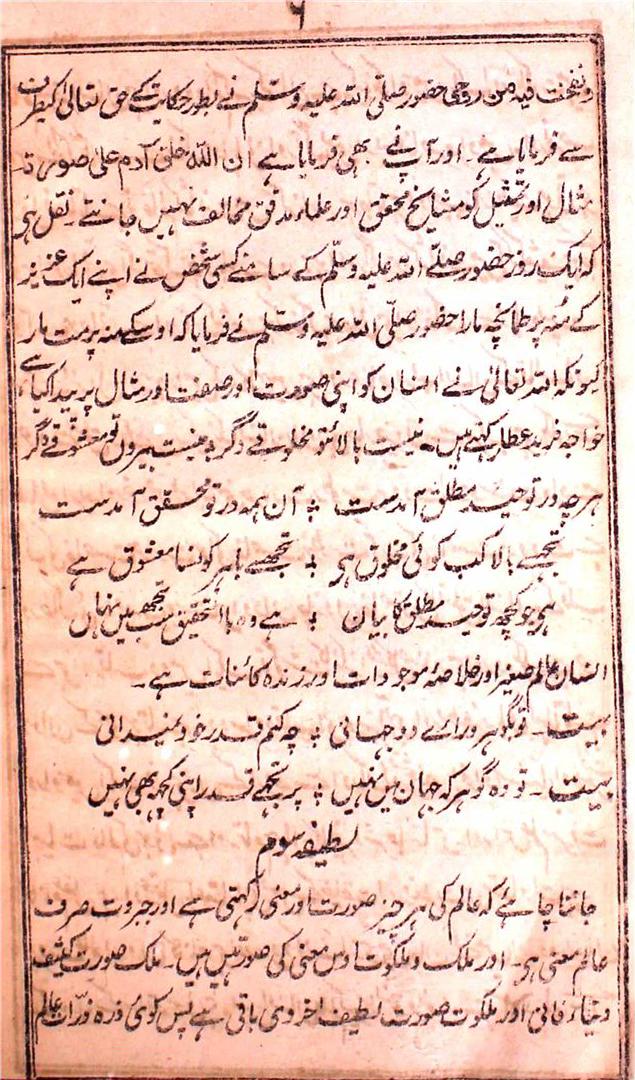 ۶
ونفخت فیه من روحی حضور صلی اللہ علیہ وسلم نے بطور حکایت کے حق تعالیٰ کیطرف
سے فرمایا ہے۔ اور آپ نے بھی فرمایا ہے ان اللہ خلق آدم علی صورتہ
مثال اور تمثیل کو مشایخ محقق اور علماء مدقق مخالف نہیں جانتے۔ نقل ہی
کہ ایک روز حضور صلے اللہ علیہ وسلم کے سامنے کسی شخص نے اپنے ایک عزیز
کے منہ پر طمانچہ مارا حضور صلی اللہ علیہ وسلم نے فرمایا کہ اوسکے منہ پر مت مار
کیونکہ اللہ تعالیٰ نے انسان کو اپنی صورت اور صفت اور مثال پر پیدا کیا ہے
خواجہ فرید عطار کہتے ہیں۔ نیست بالا ئتو مخلوقے دگر ؞ نیست بیرون تو معشوقے دگر
ہرچہ در توحید مطلق آمدست ؞ آن ہمہ در تو محقق آمدست
تجھسے بالا کب کوئی مخلوق ہی ؞ تجھسے باہر کونسا معشوق ہے
ہی جو کچھ توحید مطلق کا بیان ؞ ہے وہ باالتحقیق سب تجھ میں نہاں
انسان عالم صغیر اور خلاصۂ موجودات اور زندہ کائنات ہے۔
بیت۔ تو بگوہر ورائے دو جہانی ؞ چہ کنم قدر خود نمیدانی
بیت۔ تو وہ گوہر کہ جہان میں نہیں ؞ پر تجھے قدر اپنی کچھ بھی نہیں
لطیفہ سوم
جاننا چاہئے کہ عالم کی ہر چیز صورت اور معنی رکھتی ہے اور جبروت صرف
عالم معنی ہی۔ اور ملک و ملکوت اوس معنی کی صورتیں ہیں۔ ملک صورت کثیف
دنیاء فانی اور ملکوت صورت لطیف اخروی باقی ہے پس کوئی ذرہ ذرّات عالم